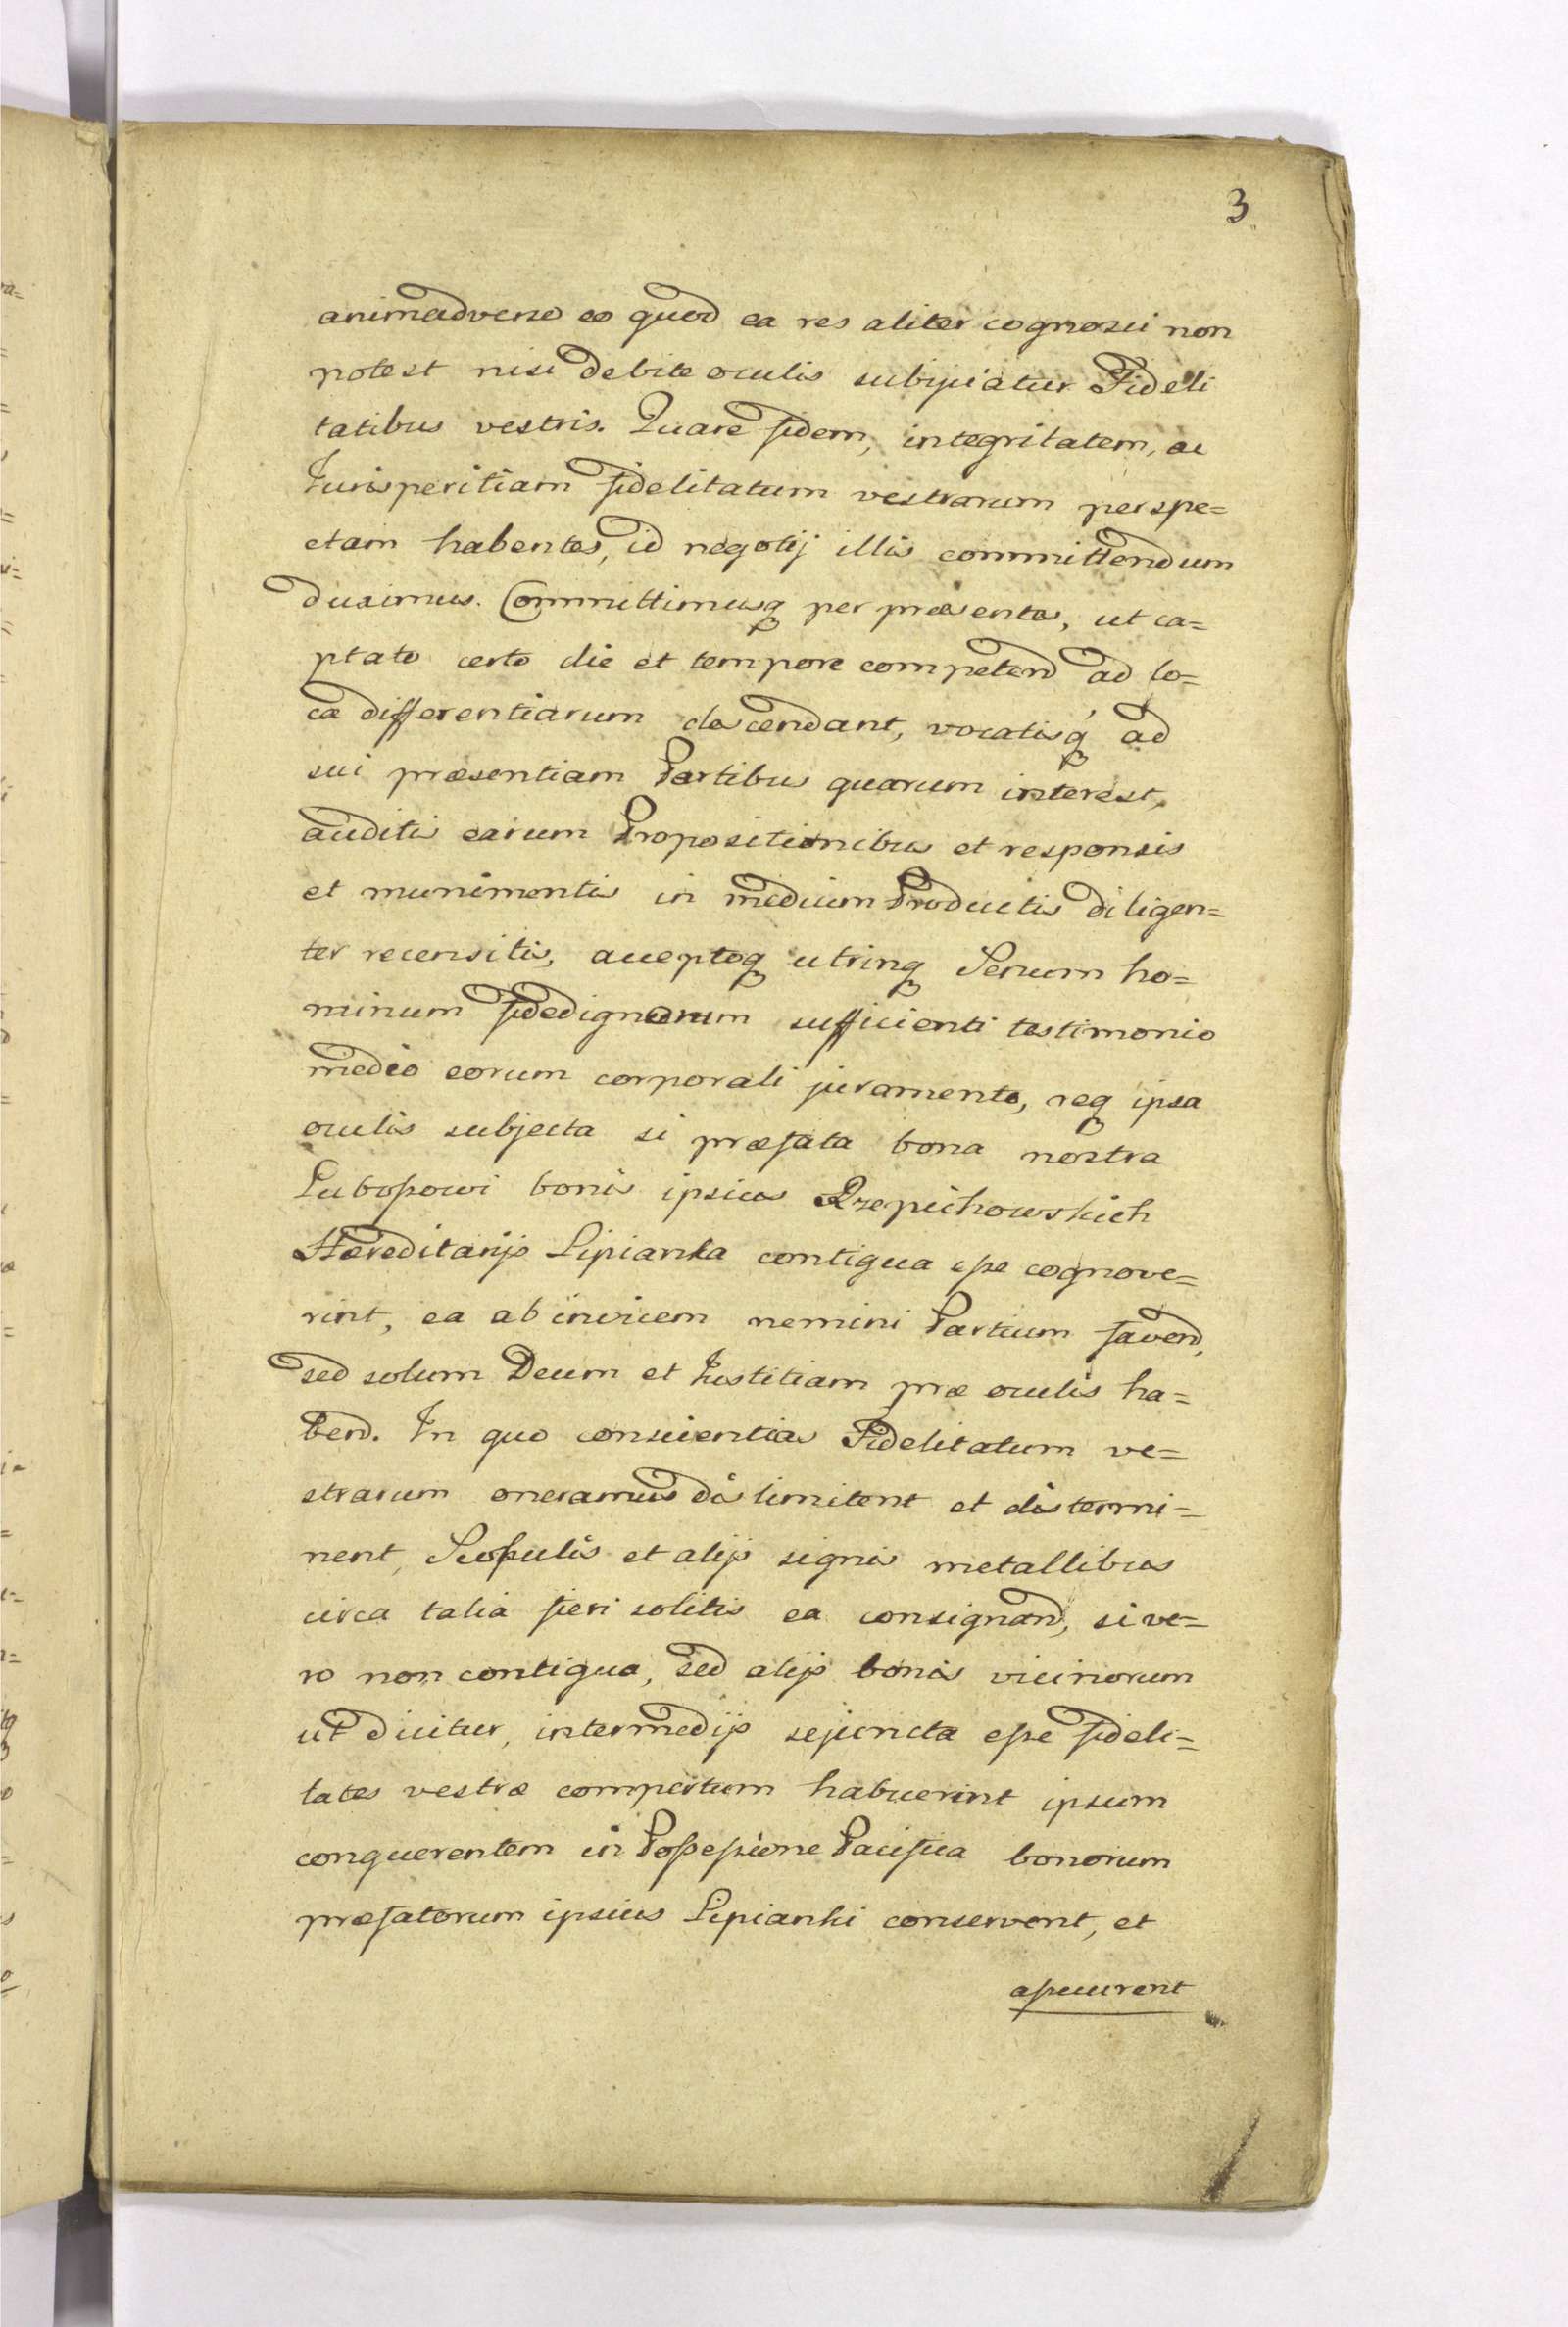 3
animadverso eo quod ea res aliter cognosci non
potest nisi debite oculis subijciatur Fideli
tatibus vestris. Quare fidem, integritatem, ac
Jurisperitiam fidelitatum vestrarum perspe=
ctam habentes, id negotij illis committendum
duximus. Committimusq per præsentes, ut ca=
ptato certo die et tempore competend ad lo=
ca differentiarum descendant, vocatisq́ ad
sui præsentiam Partibus quarum interest,
auditis earum Propositionibus et responsis
et munimentis in medium Productis diligen=
ter recensitis, acceptoq utrinq Senum ho=
minum fidedignorum sufficienti testimonio
medio eorum corporali juramento, req ipsa
oculis subjecta si præfata bona nostra
Lubossowi bonis ipsius Rzepichowskich
Hæreditarijs Lipianka contigua esse cognove=
rint, ea ab invicem nemini Partium favend,
sed solum Deum et Justitiam præ oculis ha=
bend. In quo conscientias Fidelitatum ve=
strarum oneramus dislimitent et distermi=
nent, Scopulis et alijs signis metallibus
circa talia fieri solitis ea consignand, si ve=
ro non contigua, sed alijs bonis vicinorum
ut dicitur, intermedijs sejuncta esse fideli=
tates vestræ compertum habuerint ipsum
conquerentem in Possessione Pacifica bonorum
præfatorum ipsius Lipianki conservent, et
assecurent